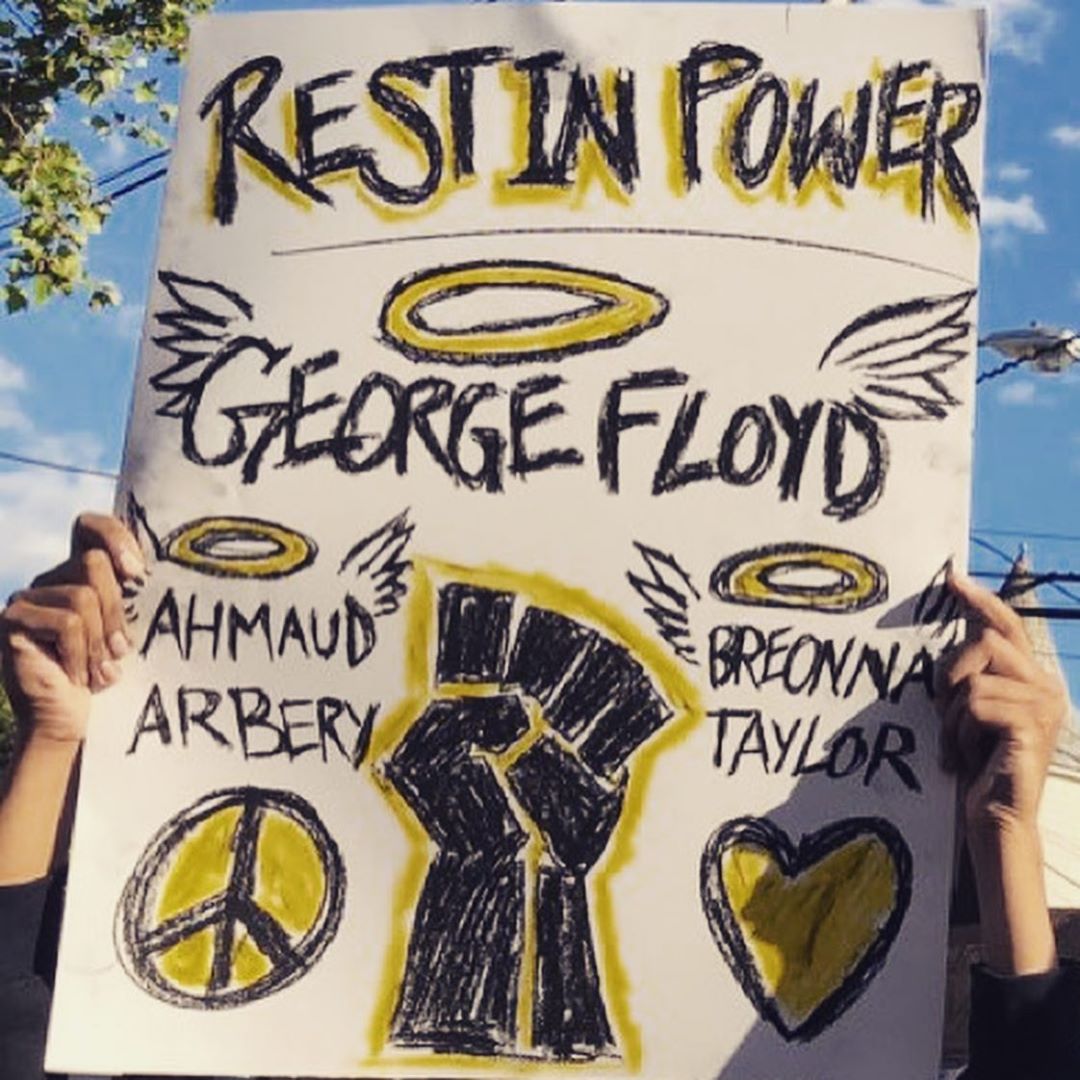 REST IN POWER
GEORGE FLOYD
AHMAUD
ARBERY
BREONNA
TAYLOR